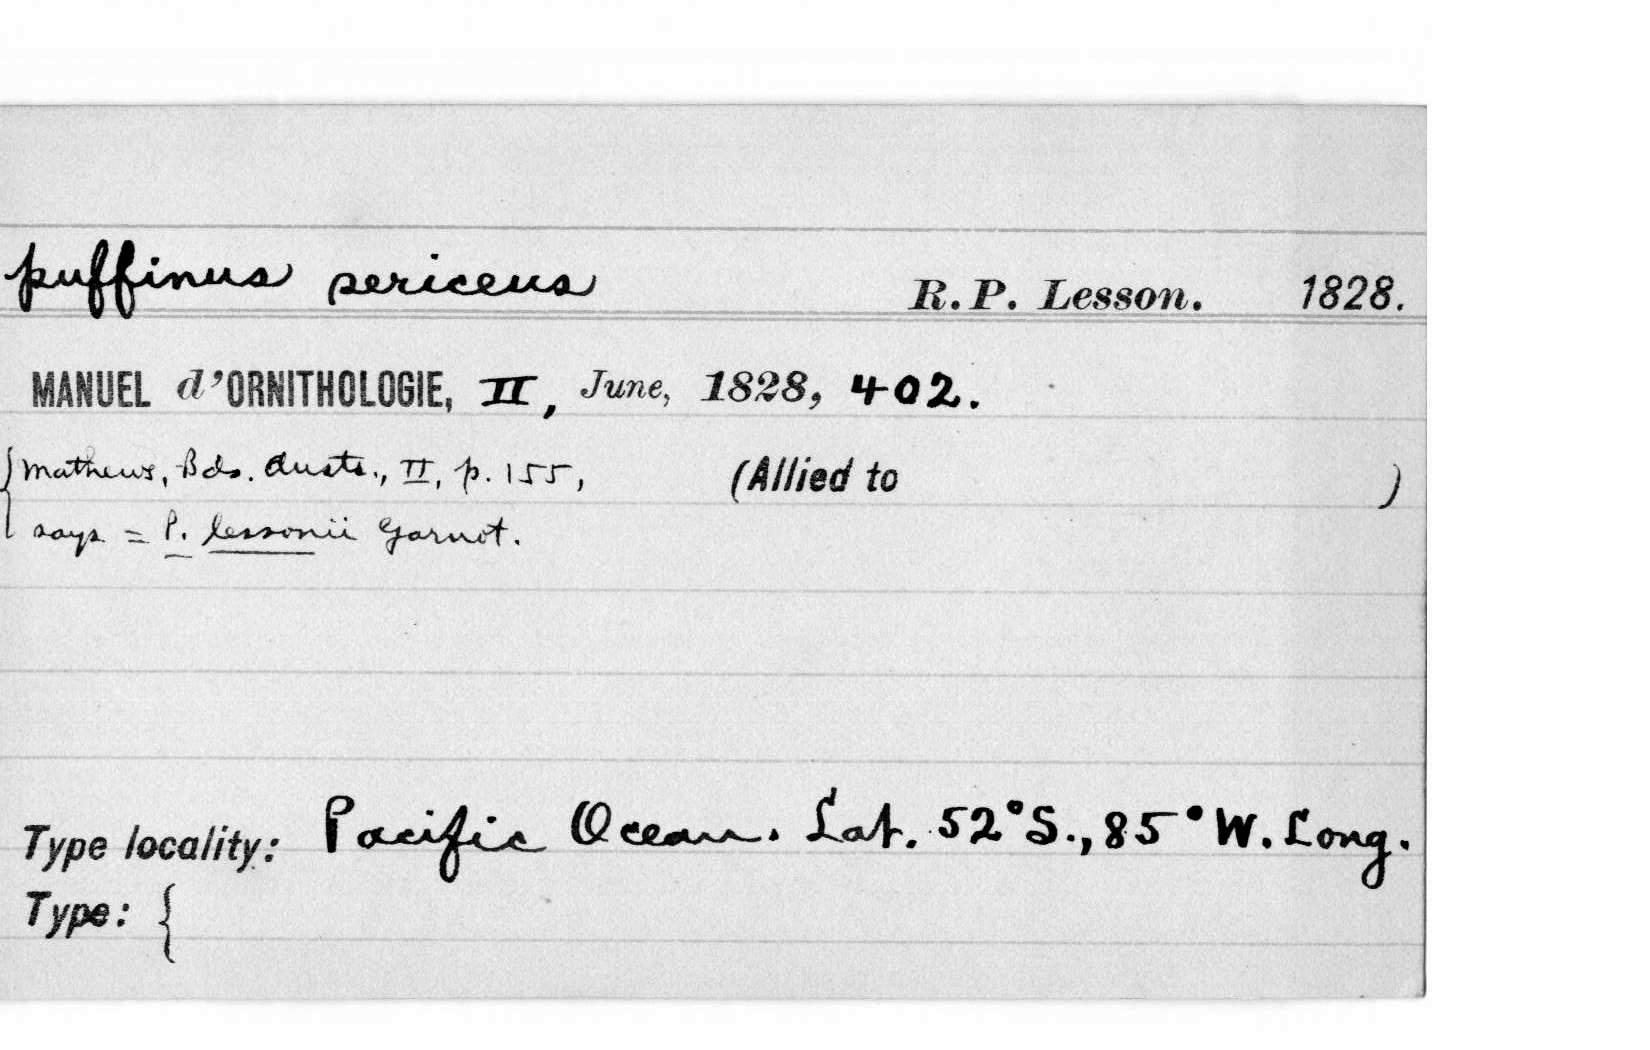 puffinus sericeus R. P. Lesson. 1828.
MANUEL d'ORNITHOLOGIE, II, June, 1828, 402.
{Mathews, Bds. Austr., II, p. 155, (Allied to )
says = P. lessonii Garnot.
Type locality: Pacific Ocean. Lat. 52°S., 85°W. Long.
Type: {